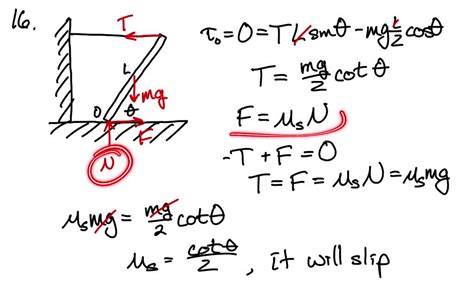 16.
T
L
mg
O
θ
F
N
τ₀ = 0 = TLsinθ - mg L/2 cosθ
T = mg/2 cotθ
F = μₛN
-T + F = 0
T = F = μₛN = μₛmg
μₛmg = mg/2 cotθ
μₛ = cotθ/2 , it will slip